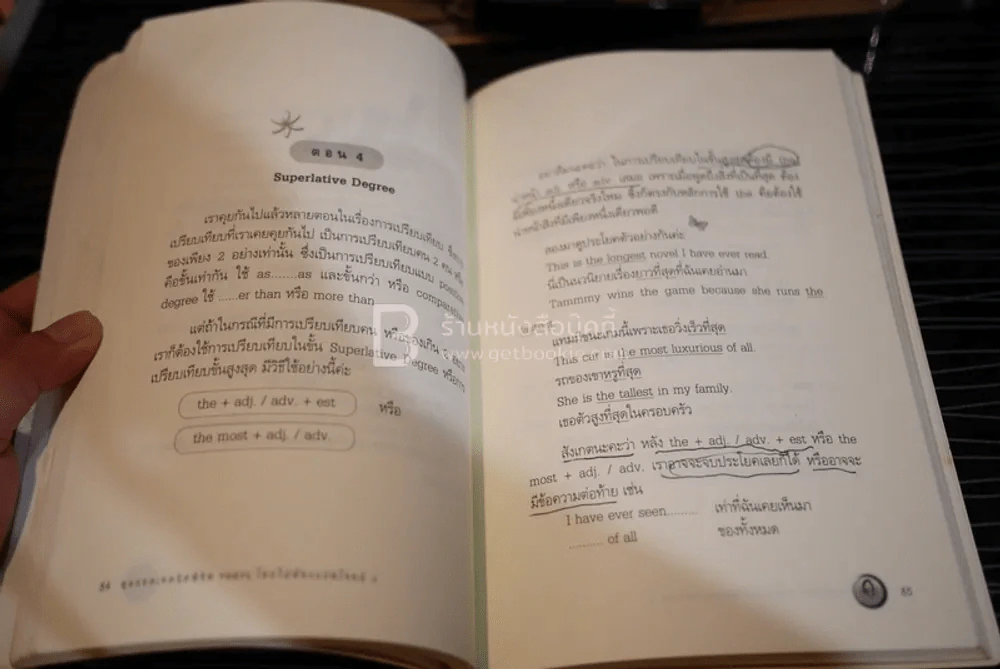 ตอน 4
Superlative Degree
เราคุยกันไปแล้วหลายตอนในเรื่องการเปรียบเทียบ ซึ่งการ
เปรียบเทียบที่เราเคยคุยกันไป เป็นการเปรียบเทียบคน 2 คน หรือ
ของเพียง 2 อย่างเท่านั้น ซึ่งเป็นการเปรียบเทียบแบบ positive
คือขั้นเท่ากัน ใช้ as........as และขั้นกว่า หรือ comparative
degree ใช้ ......er than หรือ more than
แต่ถ้าในกรณีที่มีการเปรียบเทียบคน หรือของเกิน 2
เราก็ต้องใช้การเปรียบเทียบในขั้น Superlative Degree หรือการ
เปรียบเทียบขั้นสูงสุด มีวิธีใช้อย่างนี้ค่ะ
the + adj. / adv. + est หรือ
the most + adj. / adv.
84
ในการเปรียบเทียบในขั้นสูงสุดต้องมี the
นำหน้า adj. หรือ adv. เสมอ เพราะเมื่อพูดถึงสิ่งที่เป็นที่สุด ต้อง
มีเพียงหนึ่งเดียวจริงไหม ซึ่งก็ตรงกับหลักการใช้ the คือต้องใช้
นำหน้าสิ่งที่มีเพียงหนึ่งเดียวพอดี
ลองมาดูประโยคตัวอย่างกันค่ะ
This is the longest novel I have ever read.
นี่เป็นนวนิยายเรื่องยาวที่สุดที่ฉันเคยอ่านมา
Tammmy wins the game because she runs the
แทมมี่ชนะเกมนี้เพราะเธอวิ่งเร็วที่สุด
This car is the most luxurious of all.
รถของเขาหรูที่สุด
She is the tallest in my family.
เธอตัวสูงที่สุดในครอบครัว
สังเกตนะคะว่า หลัง the + adj. / adv. + est หรือ the
most + adj. / adv. เราอาจจะจบประโยคเลยก็ได้ หรืออาจจะ
มีข้อความต่อท้าย เช่น
I have ever seen.......... เท่าที่ฉันเคยเห็นมา
.......... of all ของทั้งหมด
85
B ร้านหนังสือบุ๊คกี้